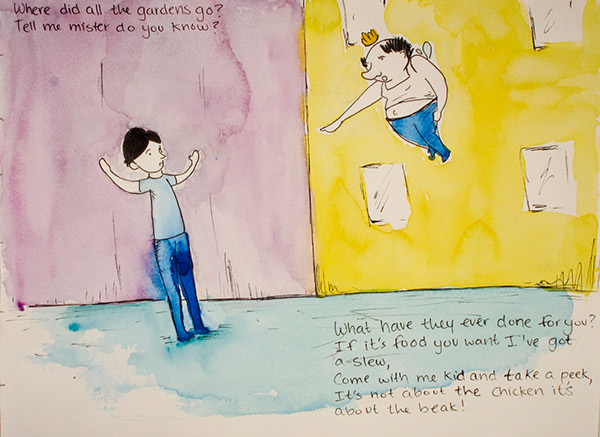 Where did all the gardens go?
Tell me mister do you know?
What have they ever done for you?
If it's food you want I've got
a slew,
Come with me kid and take a peek,
It's not about the chicken it's
about the beak!